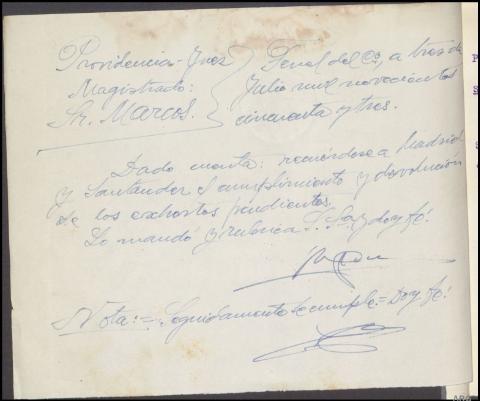 Providencia - Juez
Magistrado:
Sr. Marcos.
Penal del Pº, a tres de
Julio mil novecientos
cincuenta y tres.
Dado cuenta: recuérdese a Madrid
y Santander el cumplimiento y devolución
de los exhortos pendientes.
Lo mandó y rubrica S. Sª y doy fé.
Nota:= Seguidamente se cumple = Doy fé.